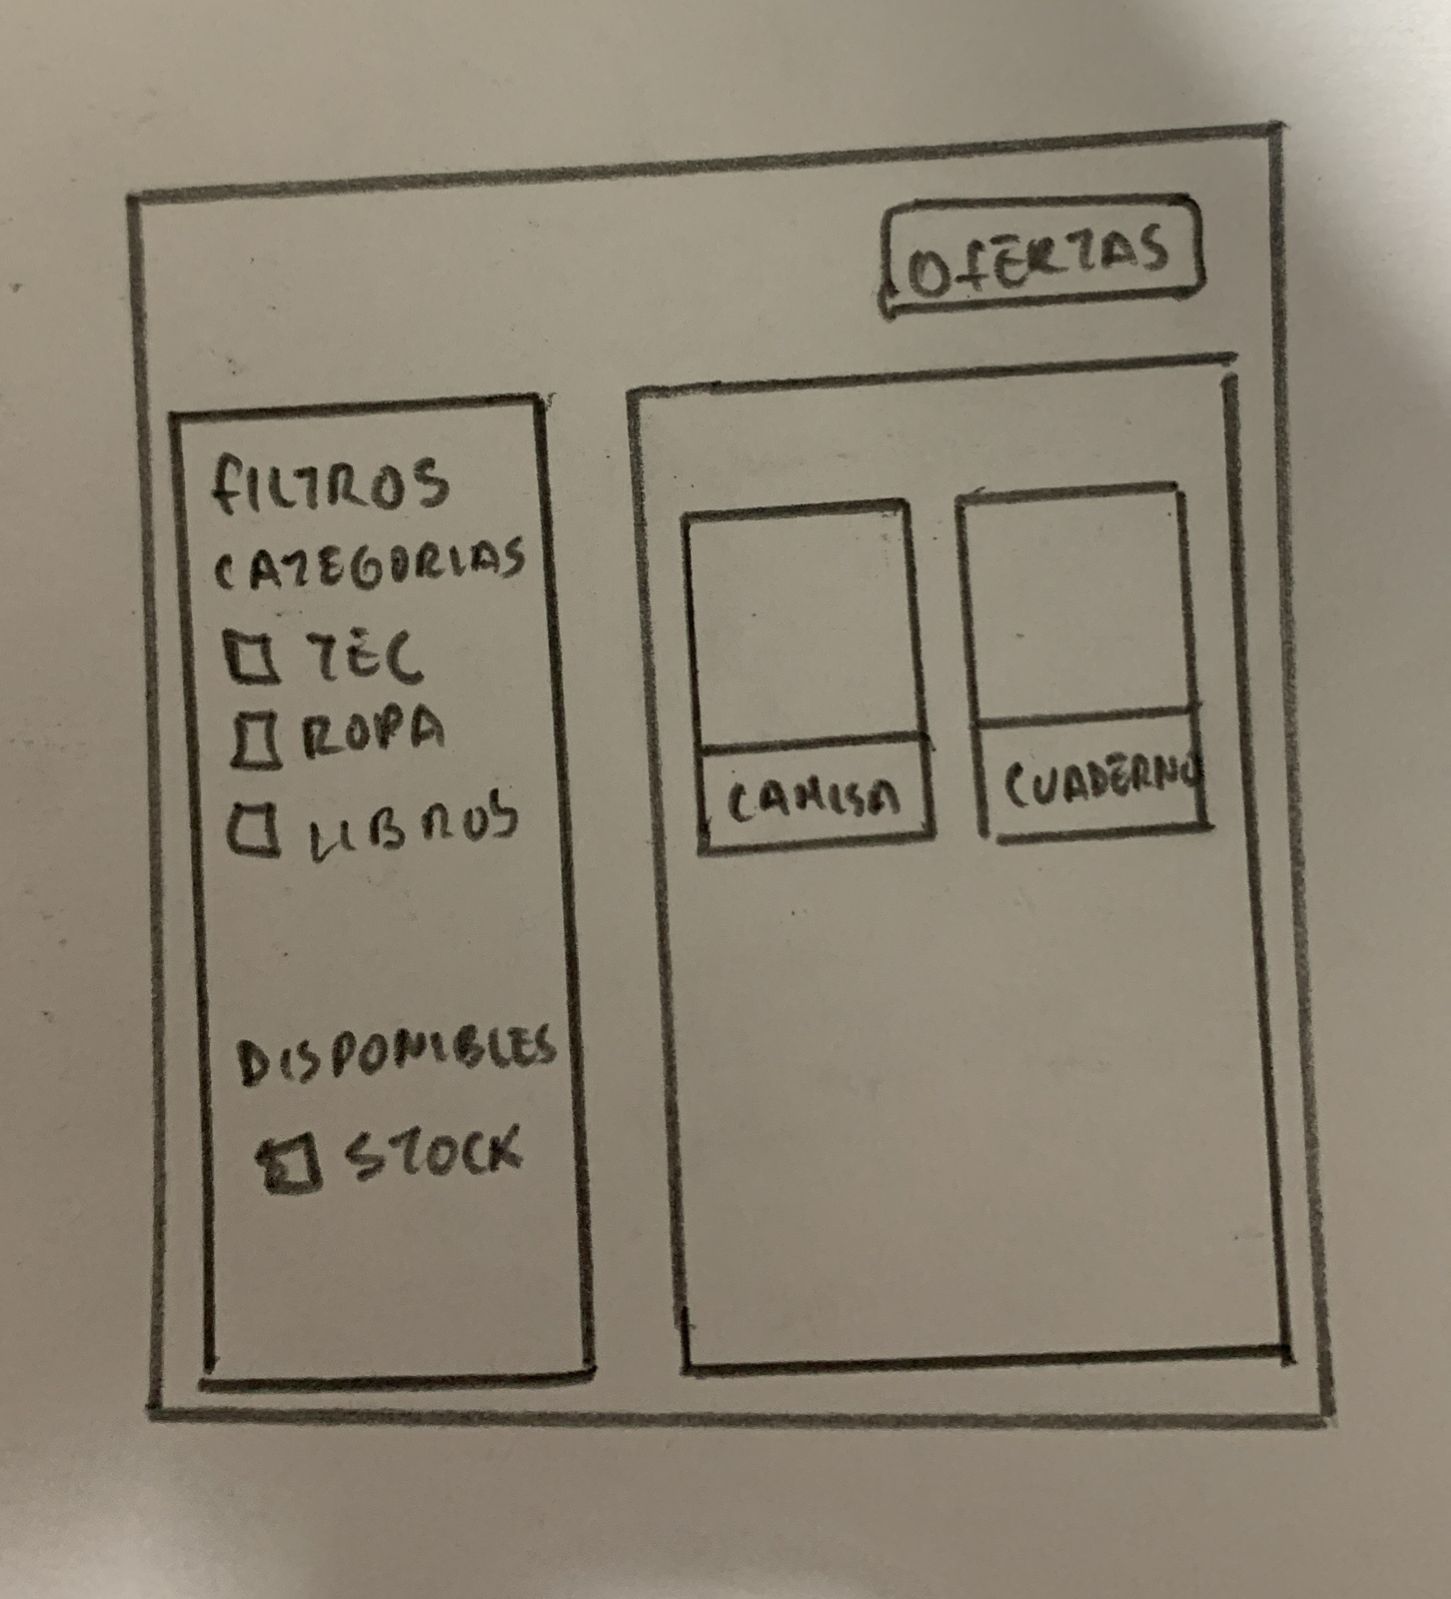 OFERTAS
FILTROS
CATEGORIAS
TEC
ROPA
LIBROS
DISPONIBLES
STOCK
CAMISA
CUADERNO